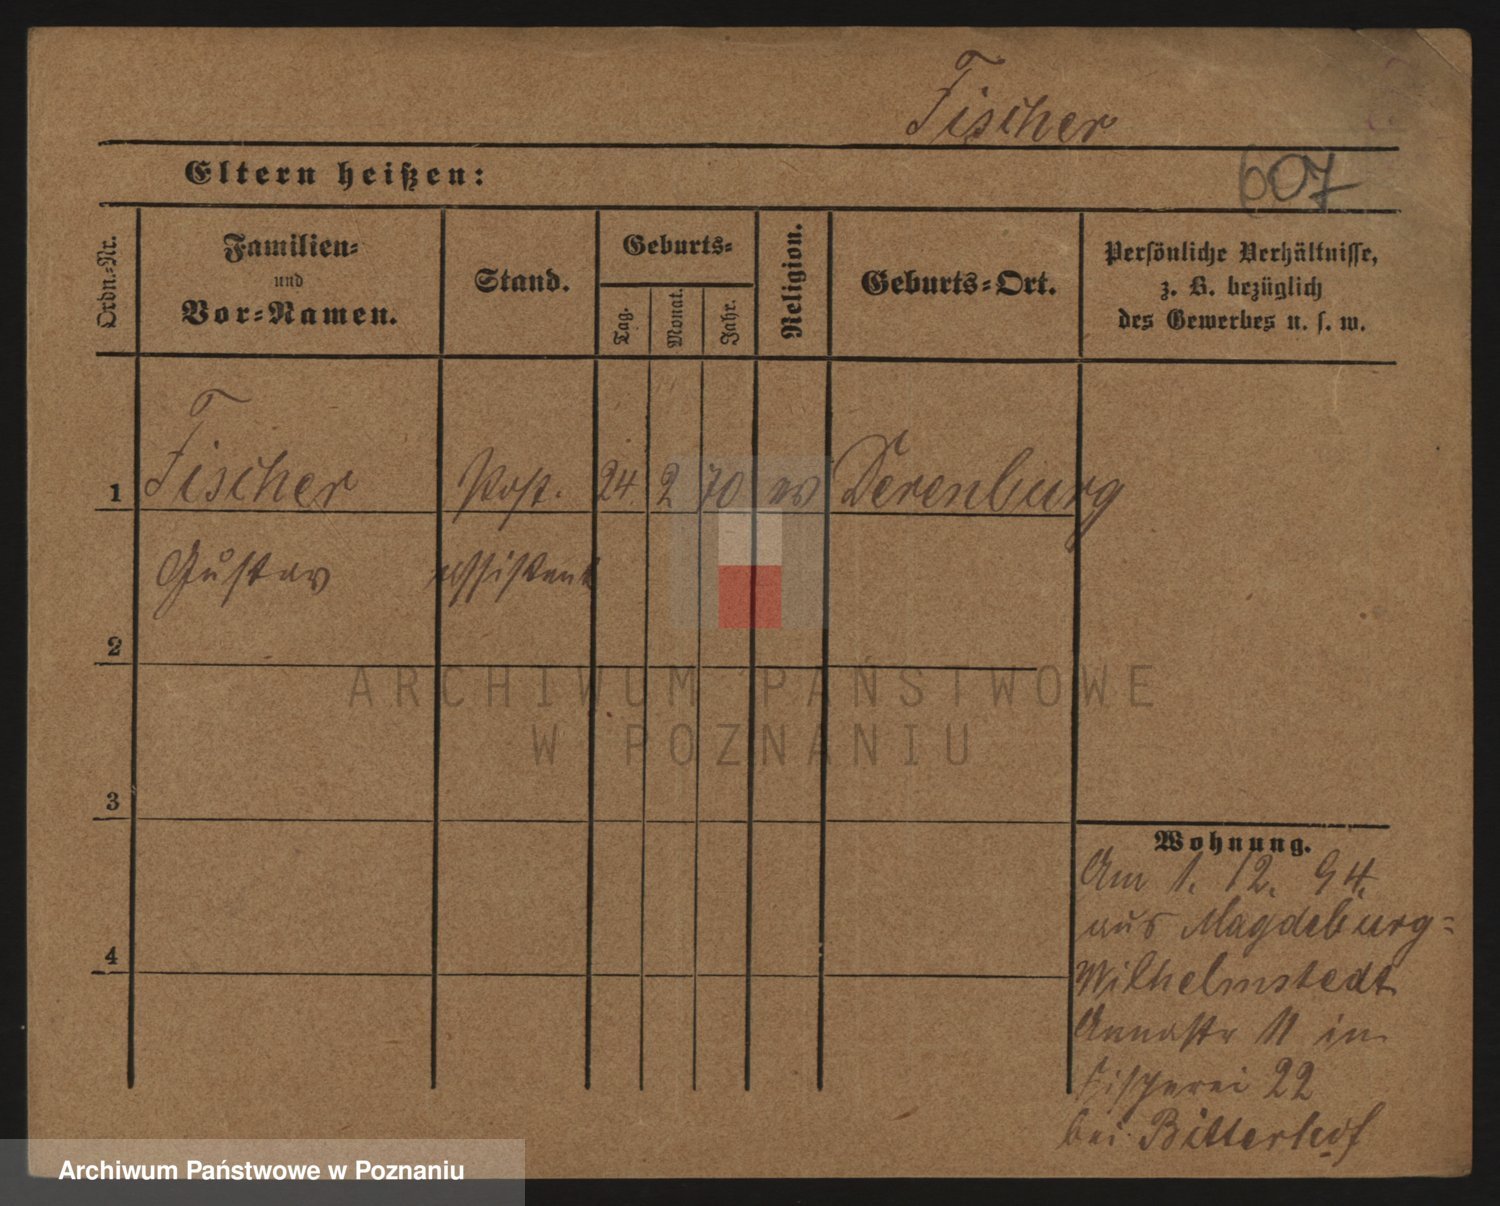 Fischer
607
Eltern heißen:
Ordn.-Nr.
Familien-
und
Vor-Namen.
Stand.
Geburts-
Tag.
Monat.
Jahr.
Religion.
Geburts-Ort.
Persönliche Verhältnisse,
z. B. bezüglich
des Gewerbes u. s. w.
1 Fischer Post. 24 2 70 ev Derenburg
Gustav assistent
2
3
4
Wohnung.
Am 1. 12. 94.
aus Magdeburg-
Wilhelmstedt
Annastr 11 in
Fischerei 22
bei Bitterhof
ARCHIWUM PAŃSTWOWE
W POZNANIU
Archiwum Państwowe w Poznaniu